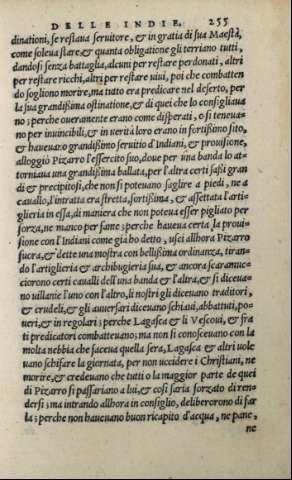 DELLE INDIE. 255
dinationi, se restaua seruitore, & in gratia di sua Maestà,
come soleua stare & quanta obligatione gli terriano tutti,
dandosi senza battaglia, alcuni per restare perdonati, altri
per restare ricchi, altri per restare uiui, poi che combatten
do sogliono morire, ma tutto era predicare nel deserto, per
la sua grandissima ostinatione, & di quei che lo consigliaua
no; perche oueramente erano come disperati, o si teneua-
no per inuincibili, & in uerità loro erano in fortissimo sito,
& haueuano grandissimo seruitio d'Indiani, & prouisione,
alloggiò Pizarro l'essercito suo, doue per una banda lo at-
torniaua una grandissima ballata, per l'altra certi sassi gran
di & precipitosi, che non si poteuano saglire a piedi, ne a
cauallo, l'intratta era stretta, fortissima, & assettata l'arti-
glieria in essa, di maniera che non poteua esser pigliato per
forza, ne manco per fame; perche haueua certa la proui
sione con l'Indiani come già ho detto, uscì allhora Pizarro
fuora, & dette una mostra con bellissima ordinanza, tiran-
do l'artiglieria & archibugieria sua, & ancora scaramuc-
ciorono certi caualli dell'una banda & l'altra, & si diceua-
no uillanie l'uno con l'altro, li nostri gli diceuano traditori,
& crudeli, & gli auuersari diceuano schiaui, abbattuti, po-
ueri, & in regolari; perche Lagasca & li Vescoui, & fra
ti predicatori combatteuano; ma non si conosceuano con la
molta nebbia che faceua quella sera, Lagasca & altri uole
uano schifare la giornata, per non uccidere i Christiani, ne
morire, & credeuano che tutti o la maggior parte de quei
di Pizarro si passariano a lui, & così saria forzato di ren-
dersi; ma intrando allhora in consiglio, deliberorono di far
la; perche non haueuano buon ricapito d'acqua, ne pane,
ne